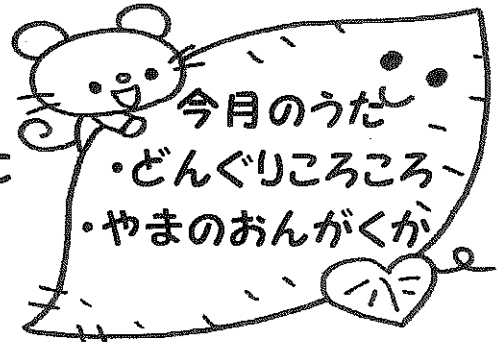 今月のうた
・どんぐりころころ
・やまのおんがくか